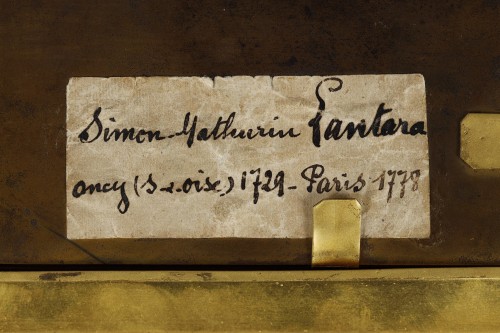 Simon-Mathurin Lantara
oncy (S.&.oise.) 1729-Paris 1778